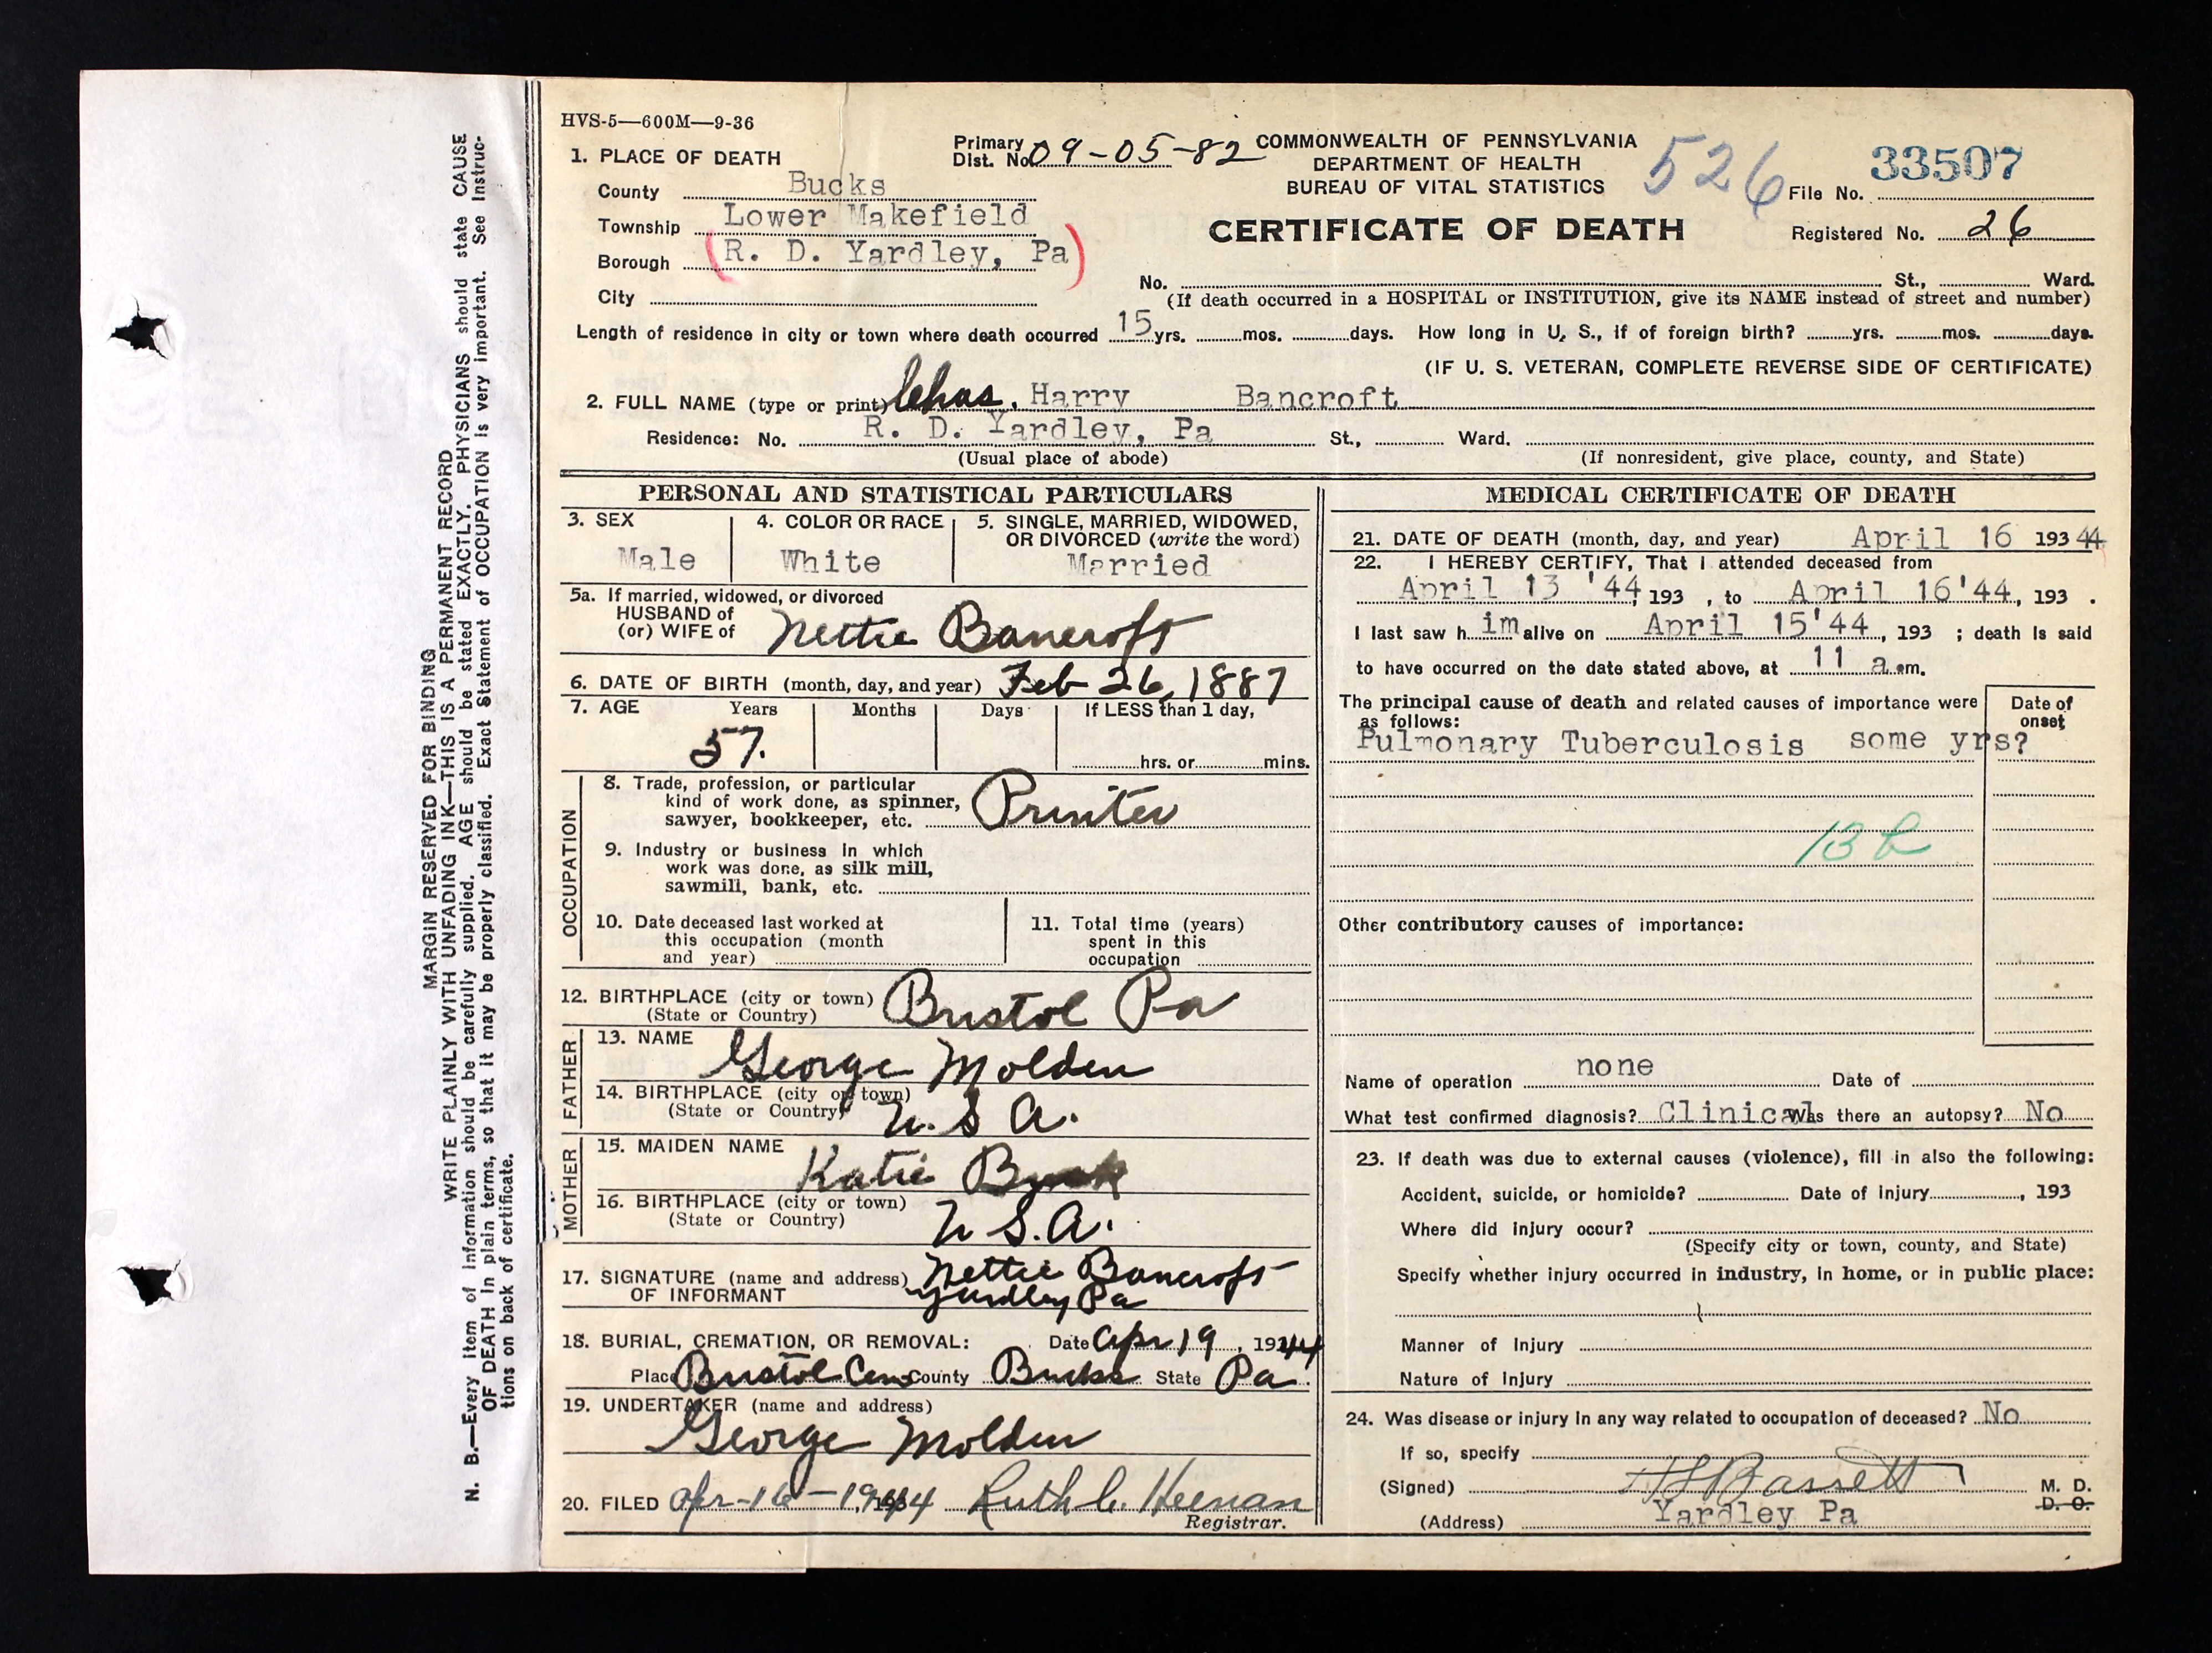 MARGIN RESERVED FOR BINDING
WRITE PLAINLY WITH UNFADING INK—THIS IS A PERMANENT RECORD
N. B.—Every item of information should be carefully supplied. AGE should be stated EXACTLY. PHYSICIANS should state CAUSE
OF DEATH in plain terms, so that it may be properly classified. Exact Statement of OCCUPATION is very important. See Instruc-
tions on back of certificate.
HVS-5—600M—9-36
Primary
Dist. No. 09-05-82
COMMONWEALTH OF PENNSYLVANIA
DEPARTMENT OF HEALTH
BUREAU OF VITAL STATISTICS
526
File No. 33507
CERTIFICATE OF DEATH
Registered No. 26
1. PLACE OF DEATH
County Bucks
Township Lower Makefield
Borough (R. D. Yardley, Pa)
City
No. St., Ward.
(If death occurred in a HOSPITAL or INSTITUTION, give its NAME instead of street and number)
Length of residence in city or town where death occurred 15 yrs. mos. days. How long in U. S., if of foreign birth? yrs. mos. days.
(IF U. S. VETERAN, COMPLETE REVERSE SIDE OF CERTIFICATE)
2. FULL NAME (type or print) Chas. Harry Bancroft
Residence: No. R. D. Yardley, Pa St., Ward.
(Usual place of abode) (If nonresident, give place, county, and State)
PERSONAL AND STATISTICAL PARTICULARS
3. SEX
Male
4. COLOR OR RACE
White
5. SINGLE, MARRIED, WIDOWED,
OR DIVORCED (write the word)
Married
5a. If married, widowed, or divorced
HUSBAND of
(or) WIFE of Nettie Bancroft
6. DATE OF BIRTH (month, day, and year) Feb 26, 1887
7. AGE Years Months Days If LESS than 1 day,
57. hrs. or mins.
OCCUPATION
8. Trade, profession, or particular
kind of work done, as spinner,
sawyer, bookkeeper, etc. Printer
9. Industry or business in which
work was done, as silk mill,
sawmill, bank, etc.
10. Date deceased last worked at
this occupation (month
and year)
11. Total time (years)
spent in this
occupation
12. BIRTHPLACE (city or town) Bristol Pa
(State or Country)
FATHER
13. NAME George Molden
14. BIRTHPLACE (city or town)
(State or Country) U.S A.
MOTHER
15. MAIDEN NAME Katie
16. BIRTHPLACE (city or town)
(State or Country) U S.A.
17. SIGNATURE (name and address) Nettie Bancroft
OF INFORMANT Yardley Pa
18. BURIAL, CREMATION, OR REMOVAL: Date Apr 19, 1944
Place Bristol Cem County Bucks State Pa.
19. UNDERTAKER (name and address)
George Molden
20. FILED Apr-16-1944 Ruth C. Heenan
Registrar.
MEDICAL CERTIFICATE OF DEATH
21. DATE OF DEATH (month, day, and year) April 16 193 44
22. I HEREBY CERTIFY, That I attended deceased from
April 13 '44, 193 , to April 16'44, 193 .
I last saw h im alive on April 15'44, 193 ; death is said
to have occurred on the date stated above, at 11 a.m.
The principal cause of death and related causes of importance were
as follows:
Date of
onset
Pulmonary Tuberculosis some yrs?
13 b
Other contributory causes of importance:
Name of operation none Date of
What test confirmed diagnosis? Clinical Was there an autopsy? No
23. If death was due to external causes (violence), fill in also the following:
Accident, suicide, or homicide? Date of injury , 193
Where did injury occur?
(Specify city or town, county, and State)
Specify whether injury occurred in industry, in home, or in public place:
Manner of Injury
Nature of Injury
24. Was disease or injury in any way related to occupation of deceased? No
If so, specify
(Signed) Bassett M. D.
D. O.
(Address) Yardley Pa